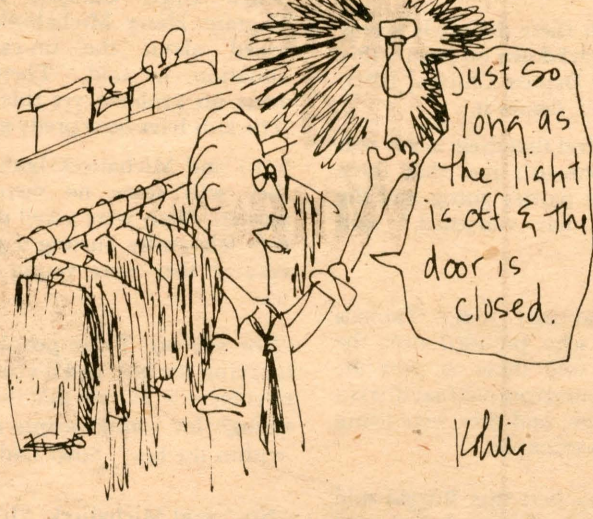 just so
long as
the light
is off & the
door is
closed.